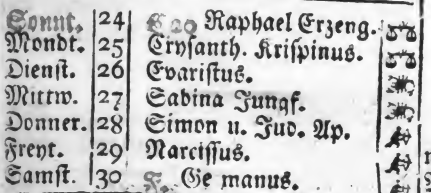 Sonnt. 24 G 20 Raphael Erzeng.
Mondt. 25 Crysanth. Krispinus.
Dienst. 26 Evaristus.
Mittw. 27 Sabina Jungf.
Donner. 28 Simon u. Jud. Ap.
Freyt. 29 Narcissus.
Samst. 30 F. Ge manus.